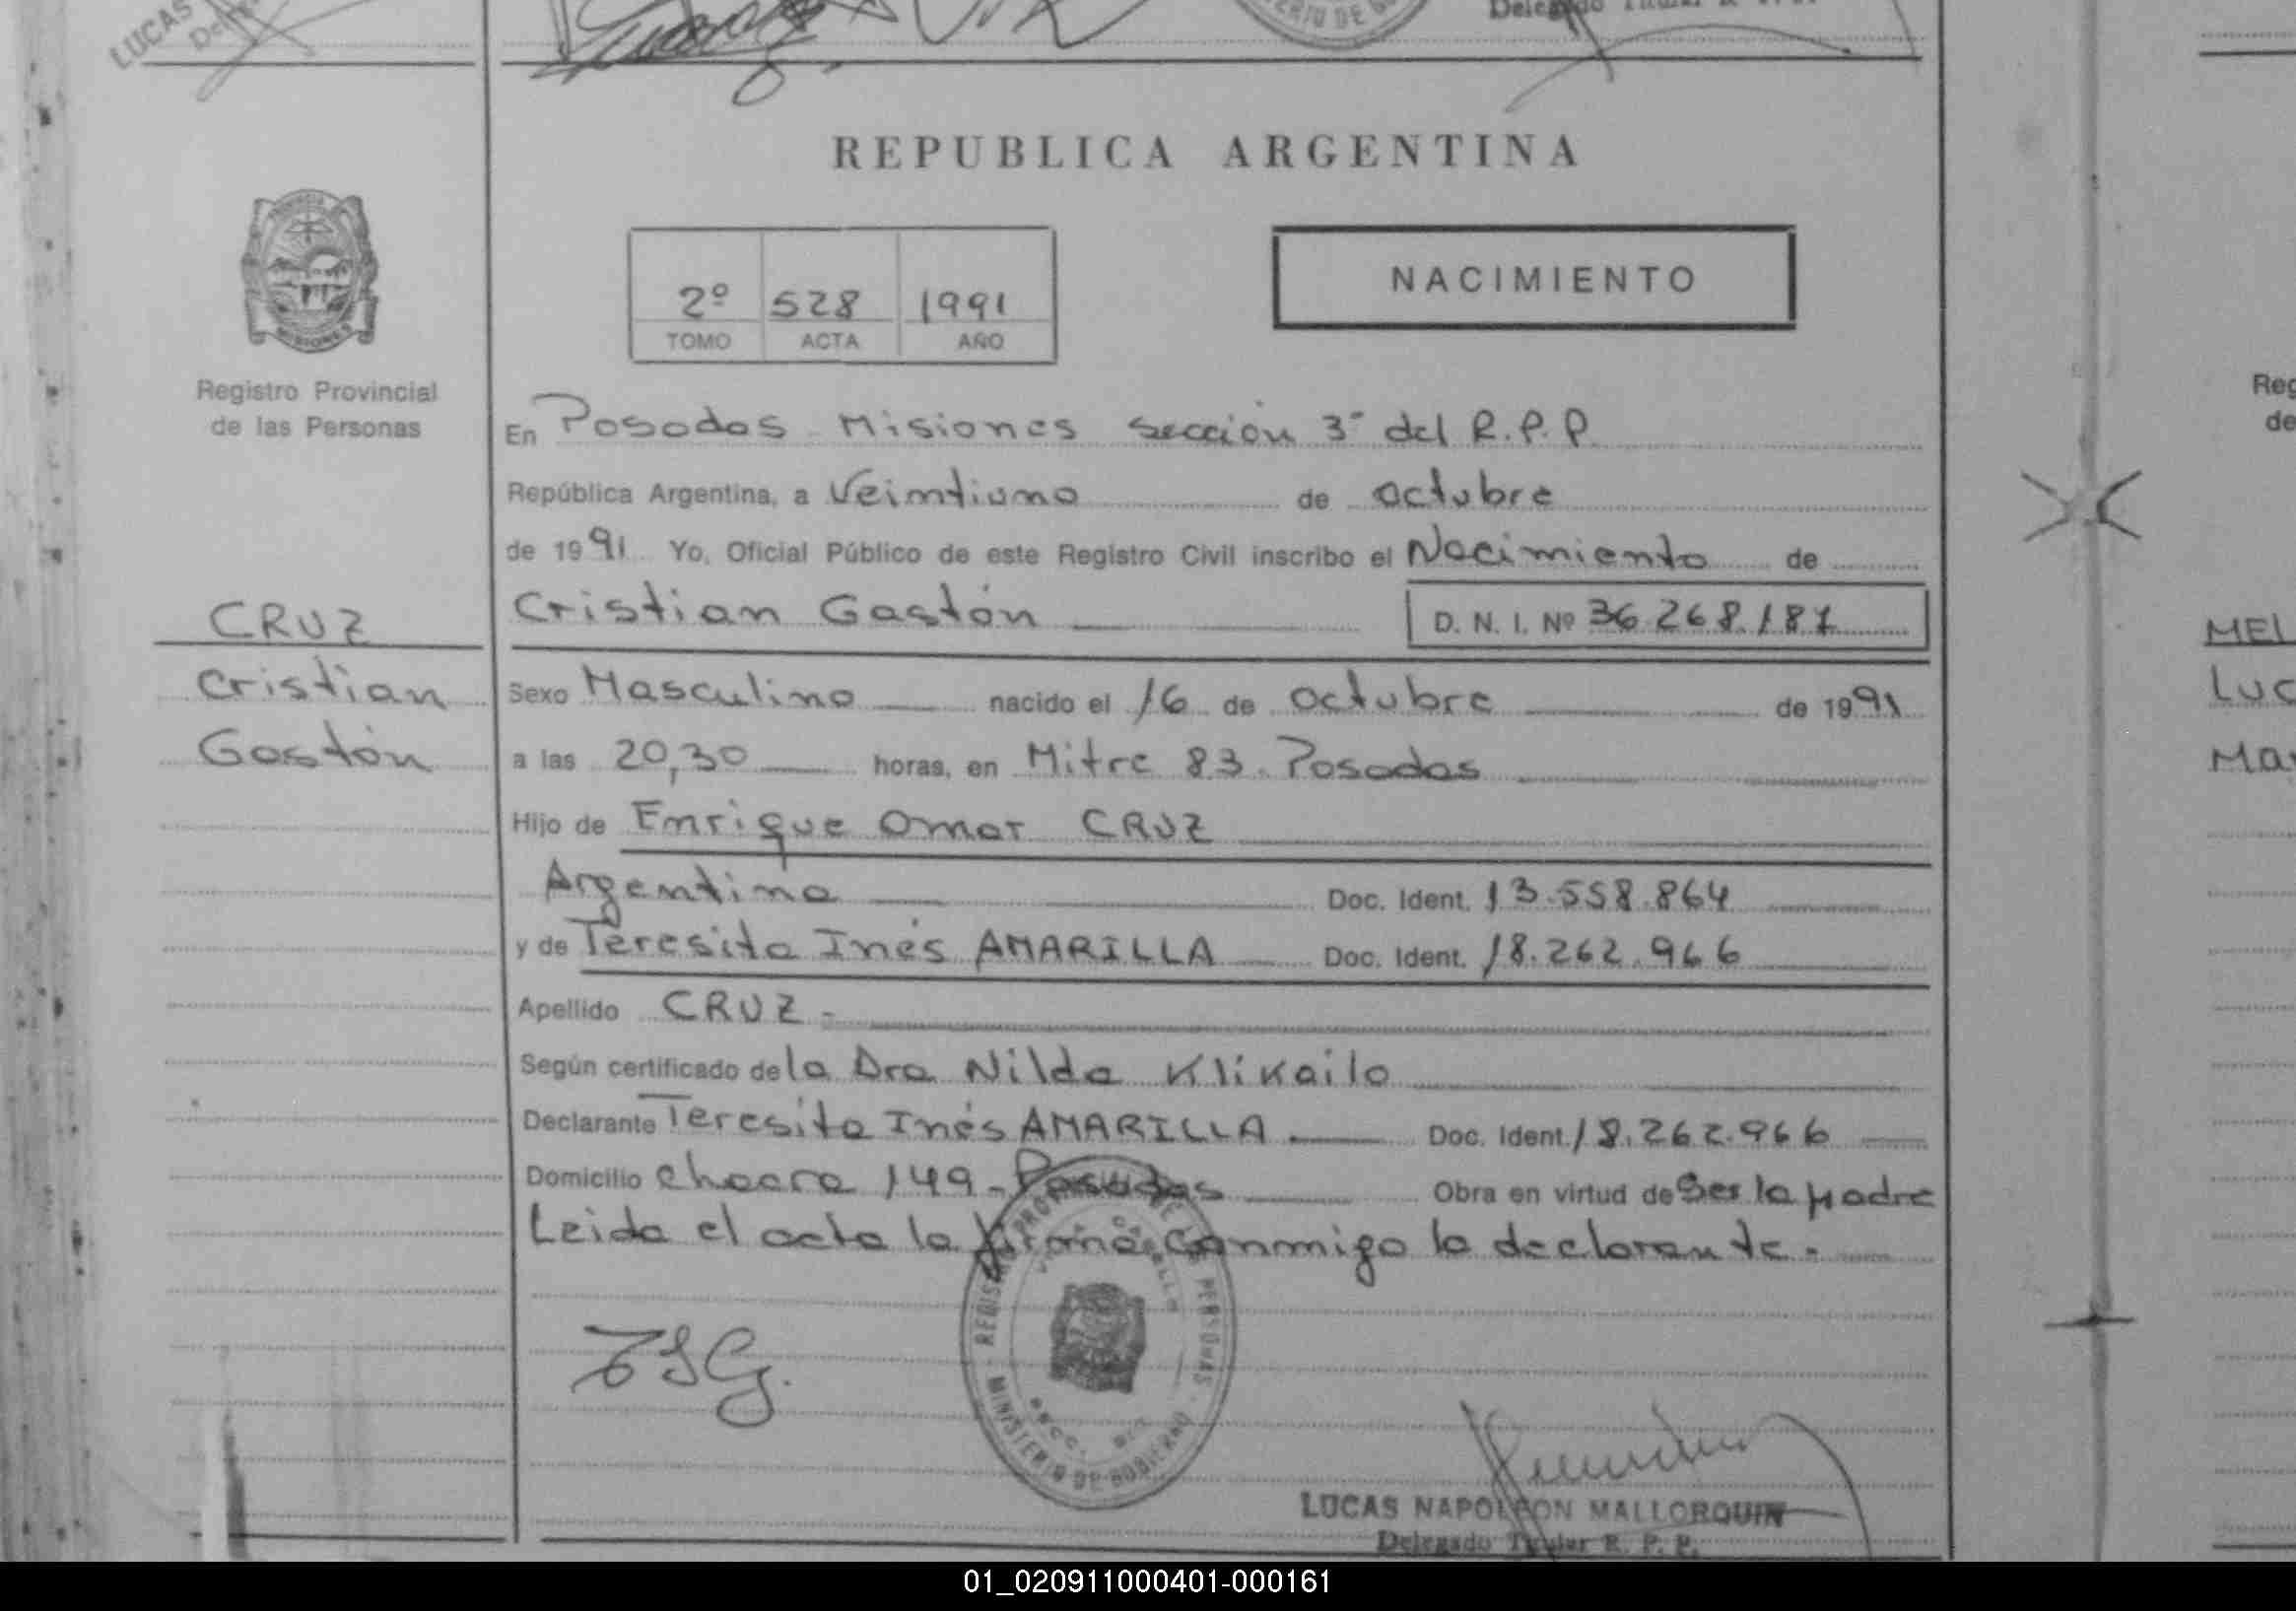 LUCAS
REPUBLICA ARGENTINA
2º 528 1991
TOMO ACTA AÑO
NACIMIENTO
Registro Provincial
de las Personas
En Posadas Misiones sección 3ª del R.P.P.
República Argentina, a Veintiuno de octubre
de 1991 Yo, Oficial Público de este Registro Civil inscribo el Nacimiento de
Cristian Gastón D. N. I. Nº 36.268.187
CRUZ
Cristian
Gastón
Sexo Masculino nacido el 16 de octubre de 1991
a las 20,30 horas, en Mitre 83. Posadas
Hijo de Enrique Omar CRUZ
Argentina Doc. Ident. 13.558.864
y de Teresita Inés AMARILLA Doc. Ident. 18.262.966
Apellido CRUZ.-
Según certificado de la Dra Nilda Klikailo
Declarante Teresita Inés AMARILLA Doc. Ident. 18.262.966
Domicilio chacra 149-Posadas Obra en virtud de Ser la madre
Leida el acta la firma conmigo la declarante.
REGISTRO PROVINCIAL DE LAS PERSONAS
MINISTERIO DE GOBIERNO
LUCAS NAPOLEON MALLORQUIN
Delegado Titular R. P. P.
Reg
de
MEL
Luc
Mar
01_020911000401-000161